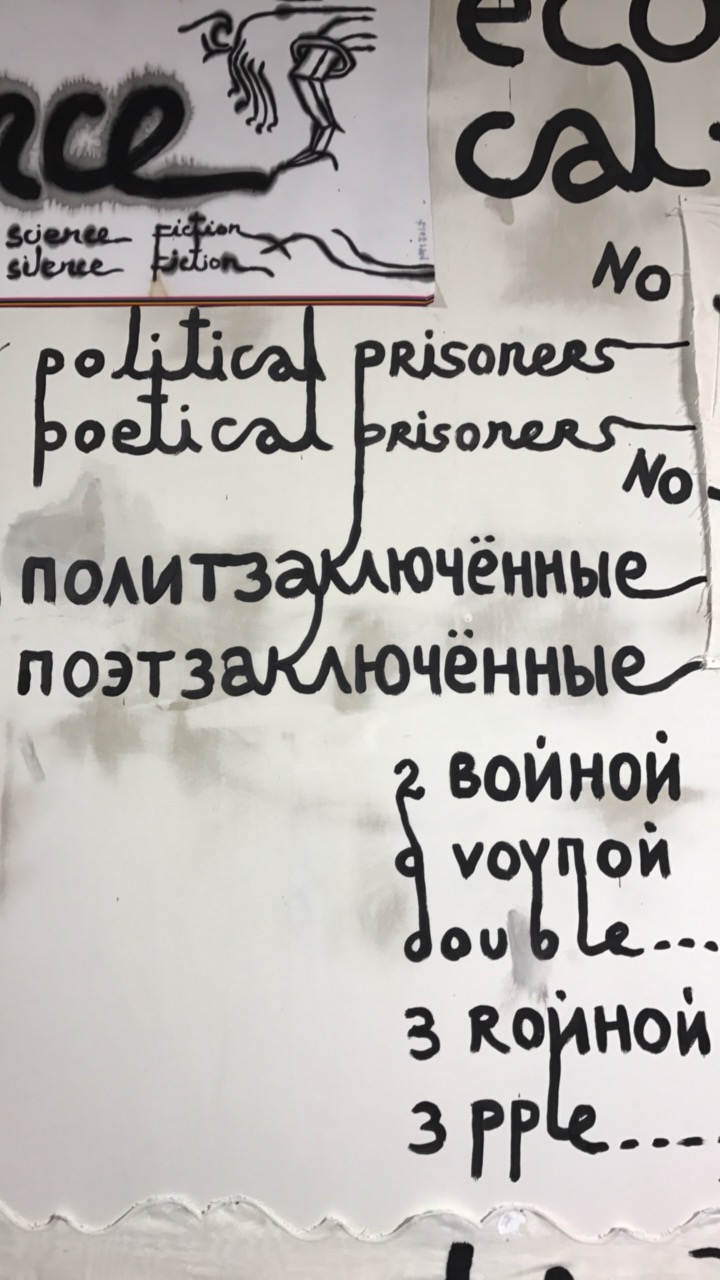 nce
science fiction
silence fiction
eco
cal
No
political prisoners
poetical prisoners
No
политзаключённые
поэтзаключённые
2 войной
d voyпой
double...
3 Rойной
3 pple....